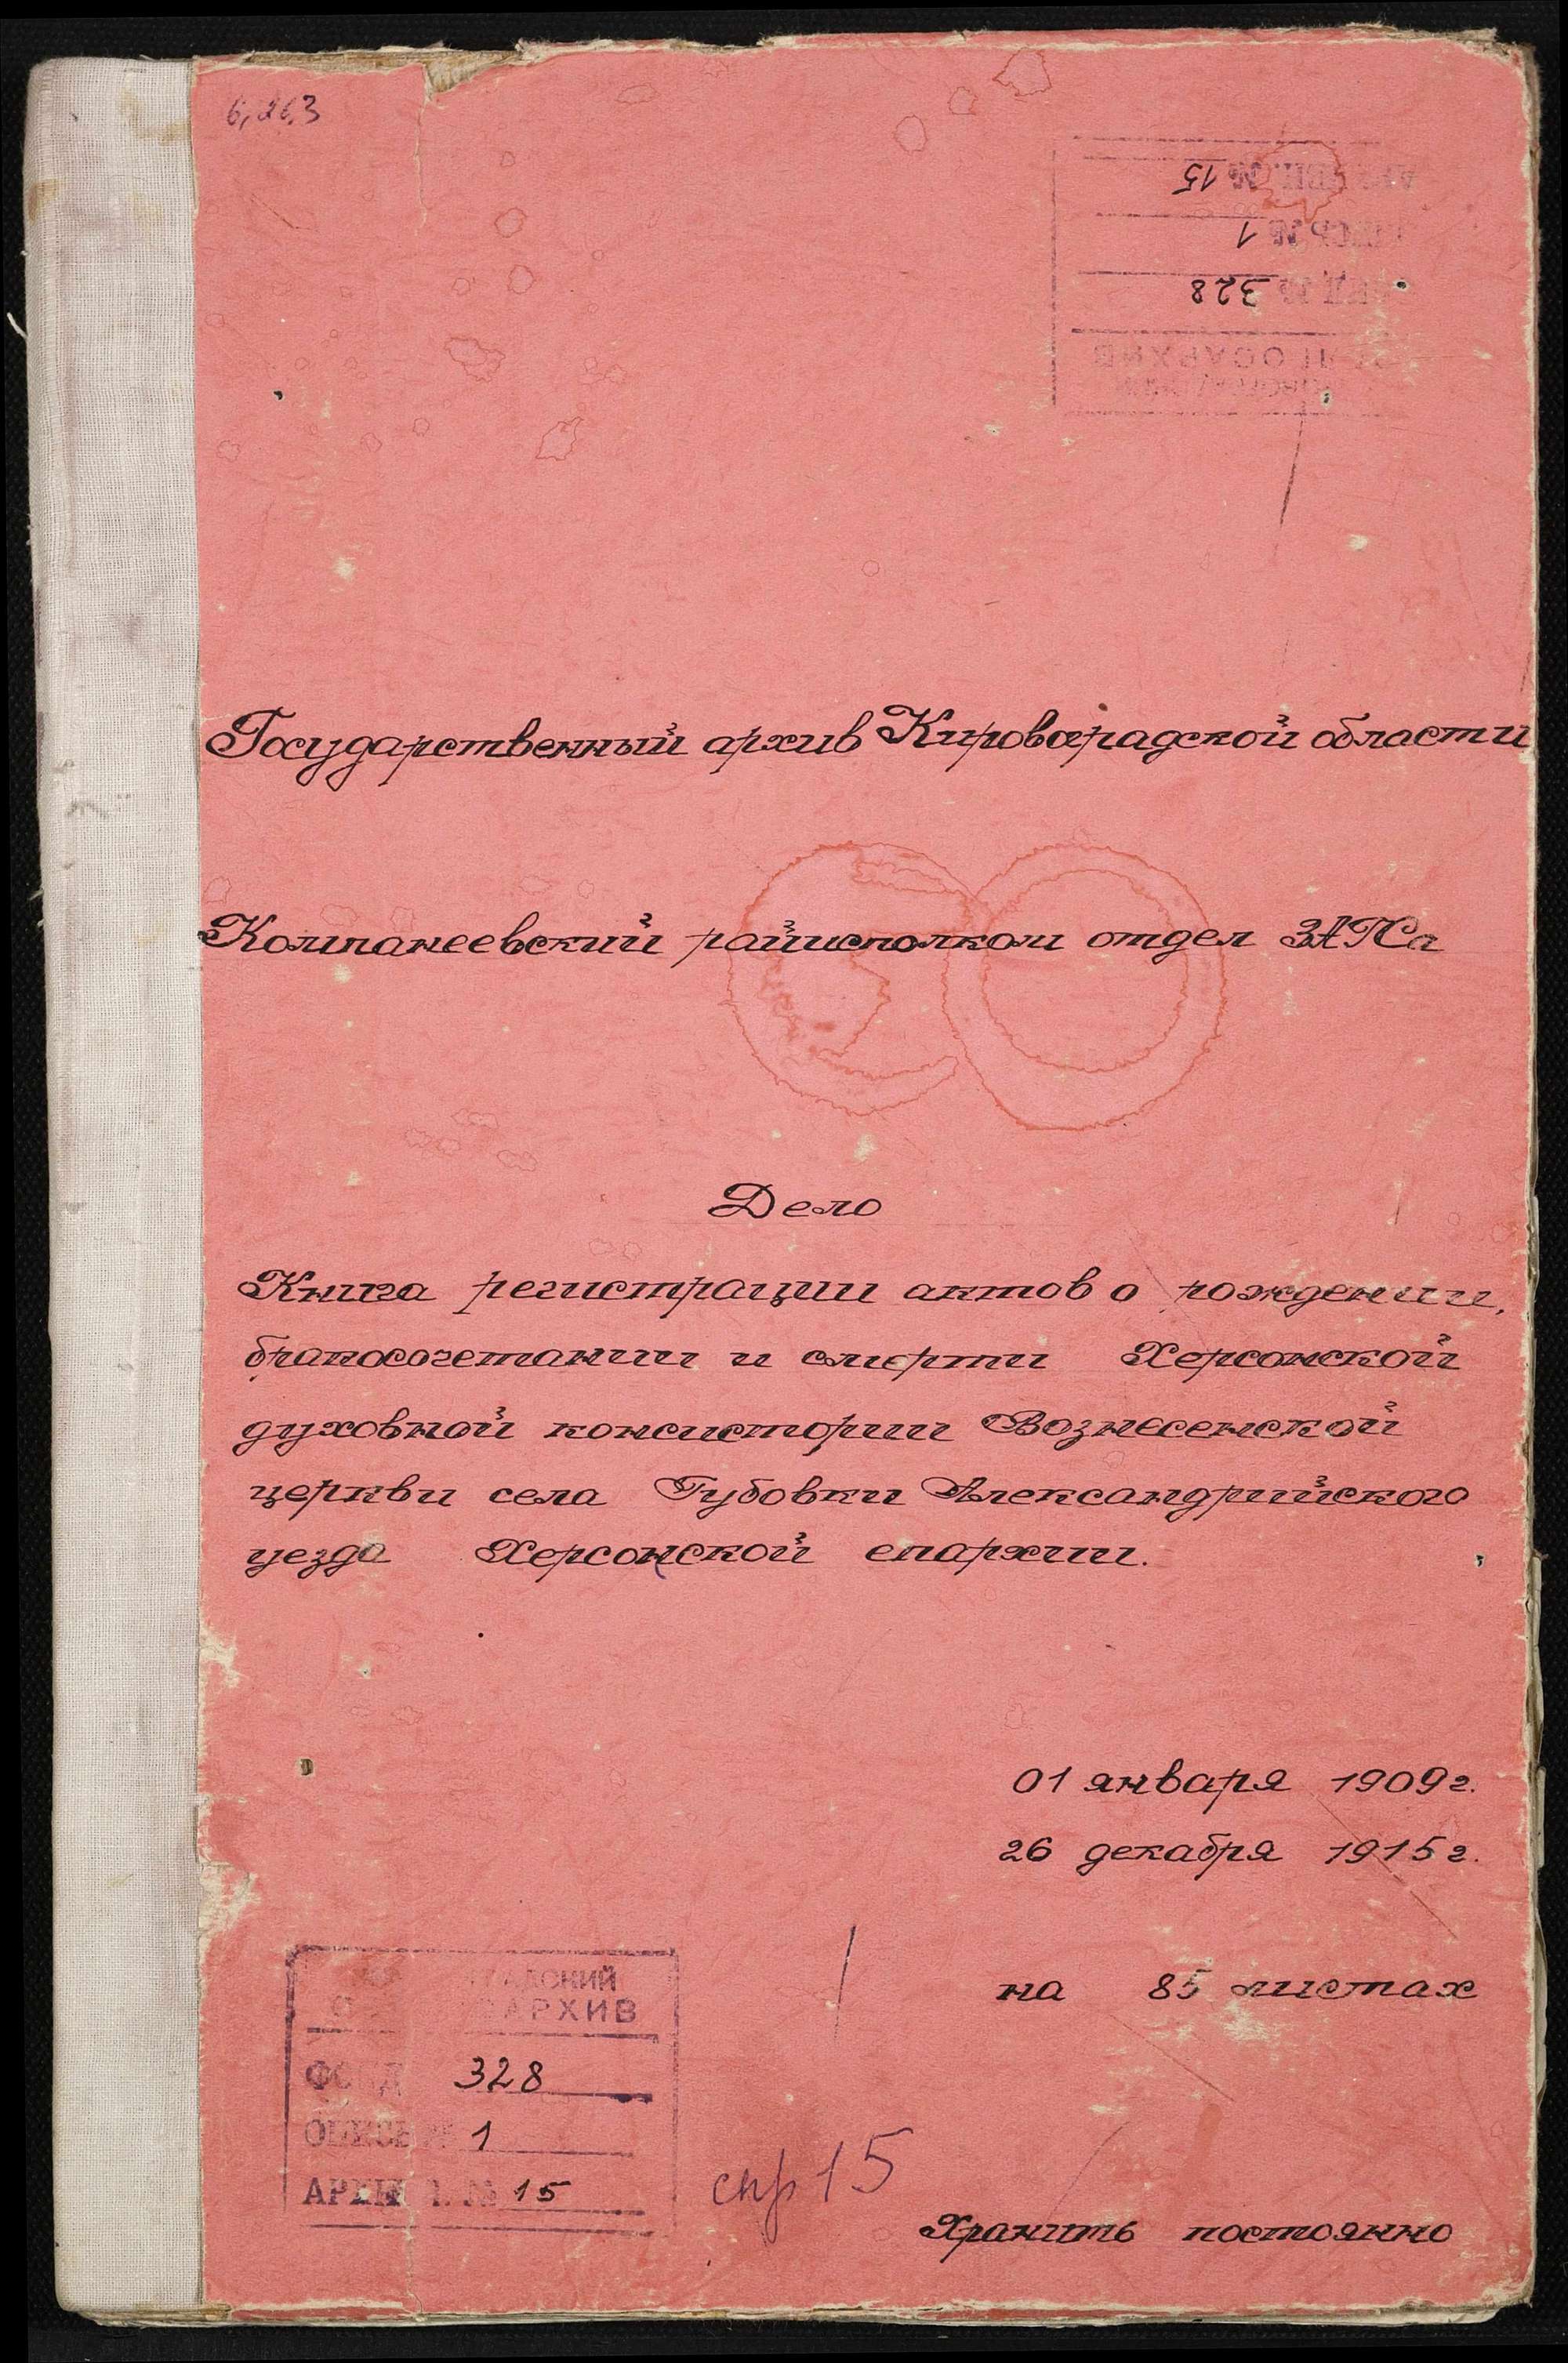 6, 26, 3
АРХИВ. № 15
ОПИСЬ № 1
ФОНД № 328
ГОСАРХИВ
Государственный архив Кировоградской области
Компанеевский райисполком отдел ЗАГСа
Дело
Книга регистрации актов о рождении,
бракосочетании и смерти Херсонской
духовной консистории Вознесенской
церкви села Губовки Александрийского
уезда Херсонской епархии.
01 января 1909 г.
26 декабря 1915 г.
на 85 листах
ГРАДСКИЙ
АРХИВ
ФОНД 328
ОПИСЬ № 1
АРХИВ. № 15
спр 15
Хранить постоянно